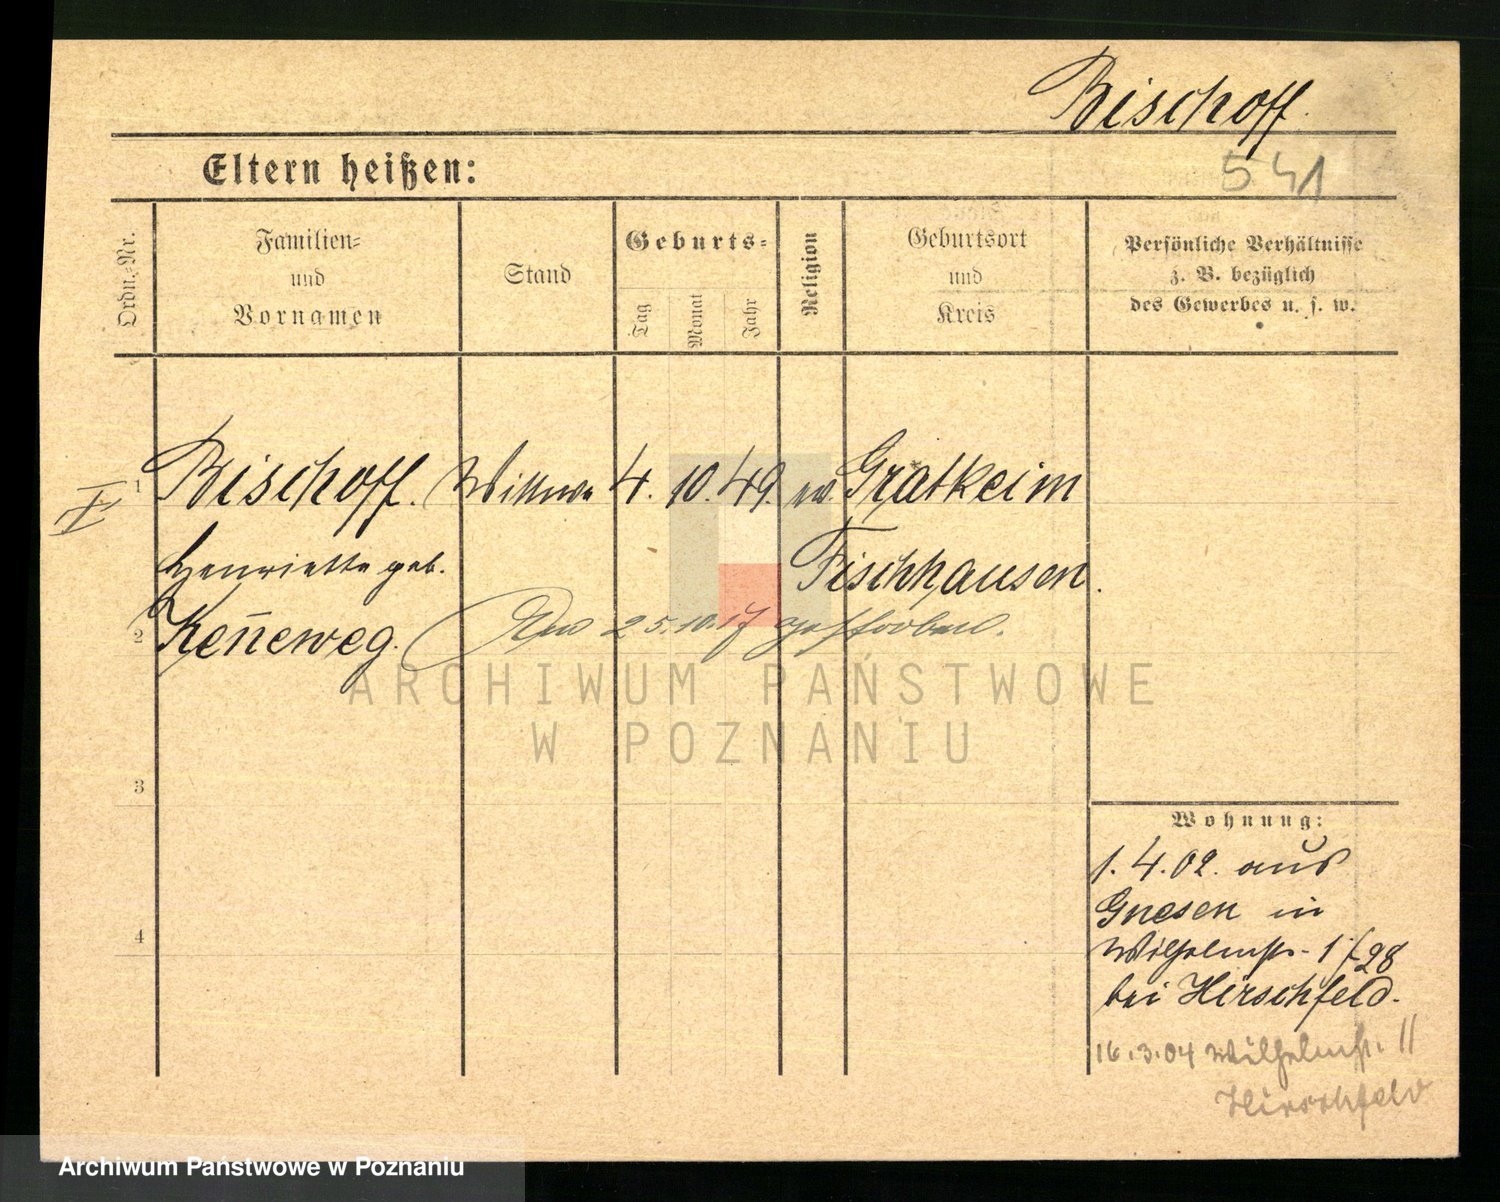 Bischoff.
541
Eltern heißen:
Ordn.-Nr.
Familien-
und
Vornamen
Stand
Geburts-
Tag
Monat
Jahr
Religion
Geburtsort
und
Kreis
Persönliche Verhältnisse
z. B. bezüglich
des Gewerbes u. s. w.
1 Bischoff. Wittwe 4. 10. 49. ev. Gratkeim
Henriette geb. Fischhausen.
2 Ken̄eweg. Am 25.10.17 gestorben.
ARCHIWUM PAŃSTWOWE
W POZNANIU
3
4
Wohnung:
1. 4. 02. aus
Gnesen in
Wilhelmstr. 1
bei Hirschfeld.
16.3.04 Wilhelmstr. 11
Hirschfeld
Archiwum Państwowe w Poznaniu